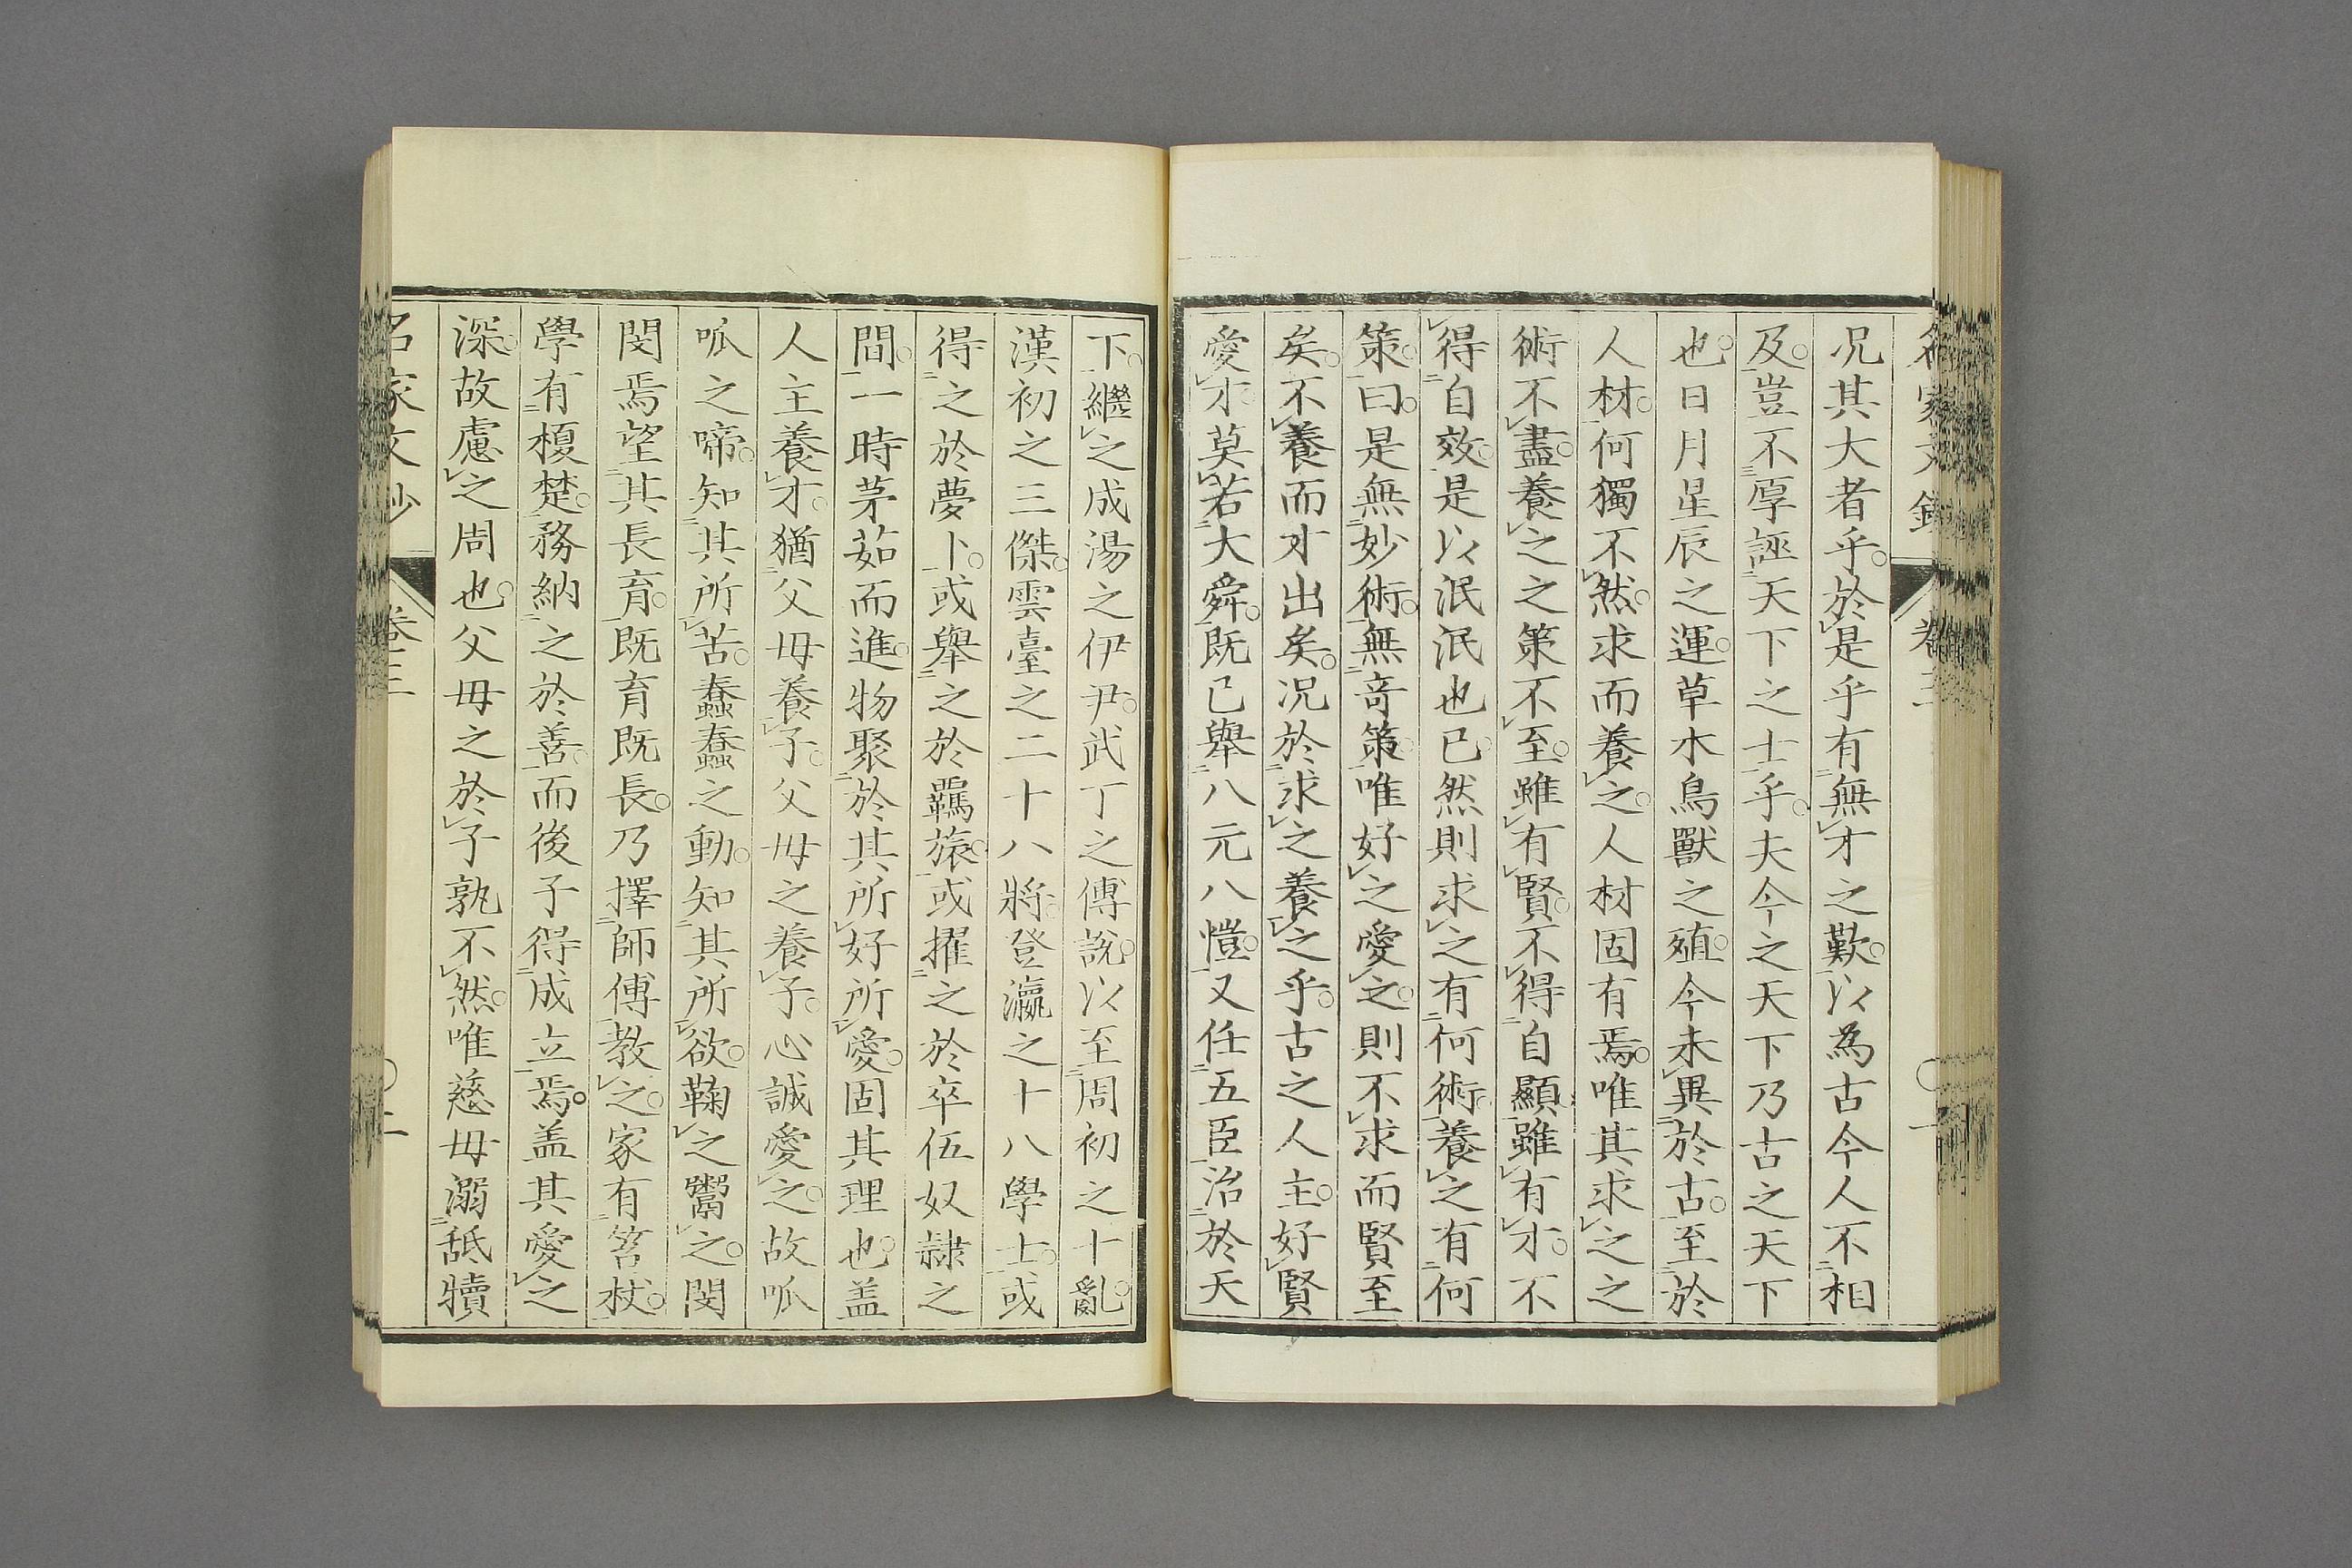 况其大者乎於是乎有無才之歎以為古今人不相
及豈不厚誣天下之士乎夫今之天下乃古之天下
也日月星辰之運草木鳥獸之殖今未異於古至於
人材何獨不然求而養之人材固有焉唯其求之之
術不盡養之之策不至雖有賢不得自顯雖有才不
得自效是以泯泯也已然則求之有何術養之有何
策曰是無妙術無竒策唯好之愛之則不求而賢至
矣不養而才出矣况於求之養之乎古之人主好賢
愛才莫若大舜既已舉八元八愷又任五臣治於天
下繼之成湯之伊尹武丁之傅說以至周初之十亂
漢初之三傑雲臺之二十八將登瀛之十八學士或
得之於夢卜或舉之於羈旅或擢之於卒伍奴隷之
間一時茅茹而進物聚於其所好所愛固其理也盖
人主養才猶父母養子父母之養子心誠愛之故呱
呱之啼知其所苦蠢蠢之動知其所欲鞠之鬻之閔
閔焉望其長育既育既長乃擇師傅教之家有笞杖
學有榎楚務納之於善而後子得成立焉盖其愛之
深故慮之周也父母之於子孰不然唯慈母溺舐犢
名家文鈔 卷三